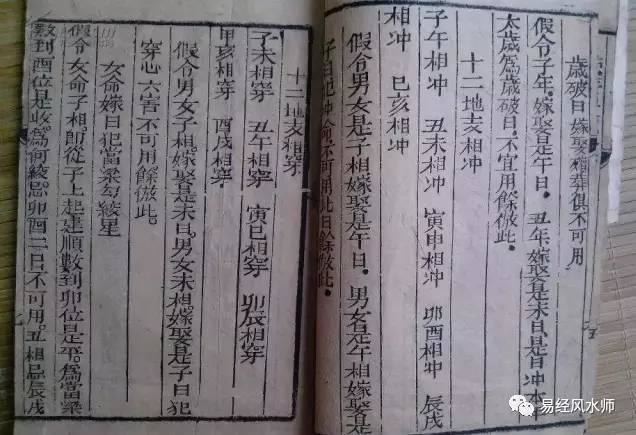 歲破日嫁娶殯葬俱不可用
假令子年。嫁娶是午日。丑年嫁娶是未日。是日冲本
太歲為歲破日。不宜用餘倣此。
十二地支相冲
子午相冲 丑未相冲 寅申相冲 卯酉相冲 辰戌
相冲 巳亥相冲
假令男女是子相嫁娶是午日。男女是午相嫁娶是
子日犯冲命不可用此日餘倣此。
五
十二地支相穿
子未相穿 丑午相穿 寅巳相穿 卯辰相穿
甲亥相穿 酉戌相穿
假令男女子相。嫁娶是未日。男女未相。嫁娶是子日犯
穿心六害不可用餘倣此。
女命嫁日犯當梁勾絞星
假令女命子相。即從子上起建順數到卯位是平。為當梁
數到酉位是收。為何絞忌。卯酉二日不可用。丑相忌辰戌
易经风水师